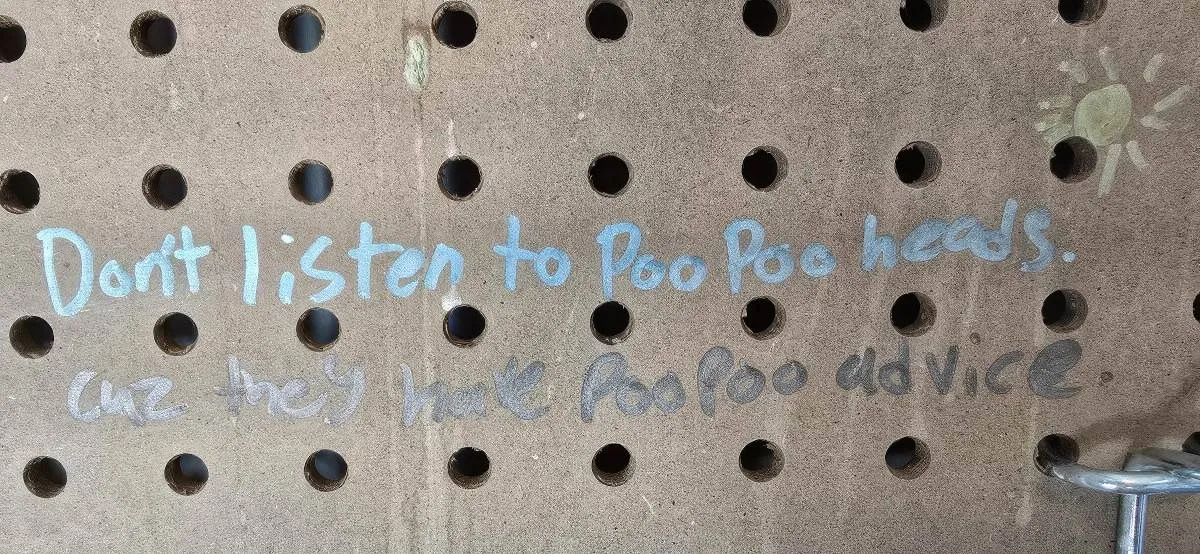 Don't listen to PooPoo heads.
cuz they have PooPoo advice